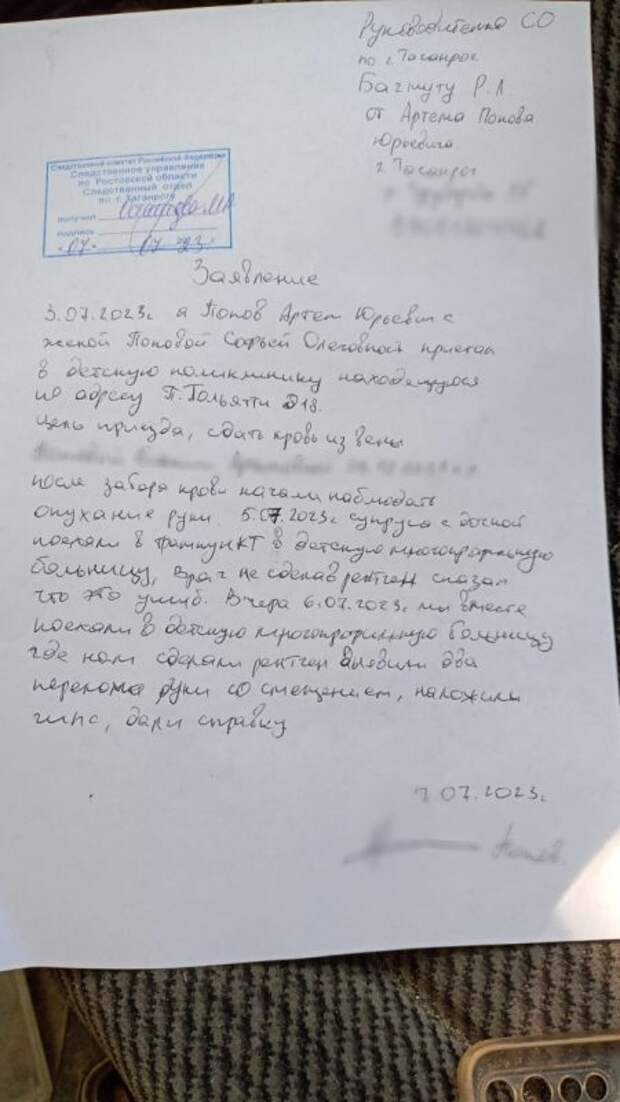 Руководителю СО
по г. Таганрог
Багмуту Р.Л
от Артема Попова
Юрьевича
г. Таганрог
Следственный комитет Российской Федерации
Следственное управление
по Ростовской области
Следственный отдел
по г. Таганрогу
получил
подпись
"07" 07 23г
Заявление
3.07.2023г я Попов Артем Юрьевич с
женой Поповой Софьей Олеговной приехал
в детскую поликлинику находящуюся
по адресу П.Тольятти д18.
цель приезда, сдать кровь из вены
после забора крови начали наблюдать
опухание руки. 5.07.2023г супруга с дочкой
поехали в травмпункт в детскую многопрофильную
больницу, врач не сделав рентген сказал
что это ушиб. Вчера 6.07.2023г мы вместе
поехали в детскую многопрофильную больницу
где нам сделали рентген выявили два
перелома руки со смещением, наложили
гипс, дали справку
7 07.2023г
Попов